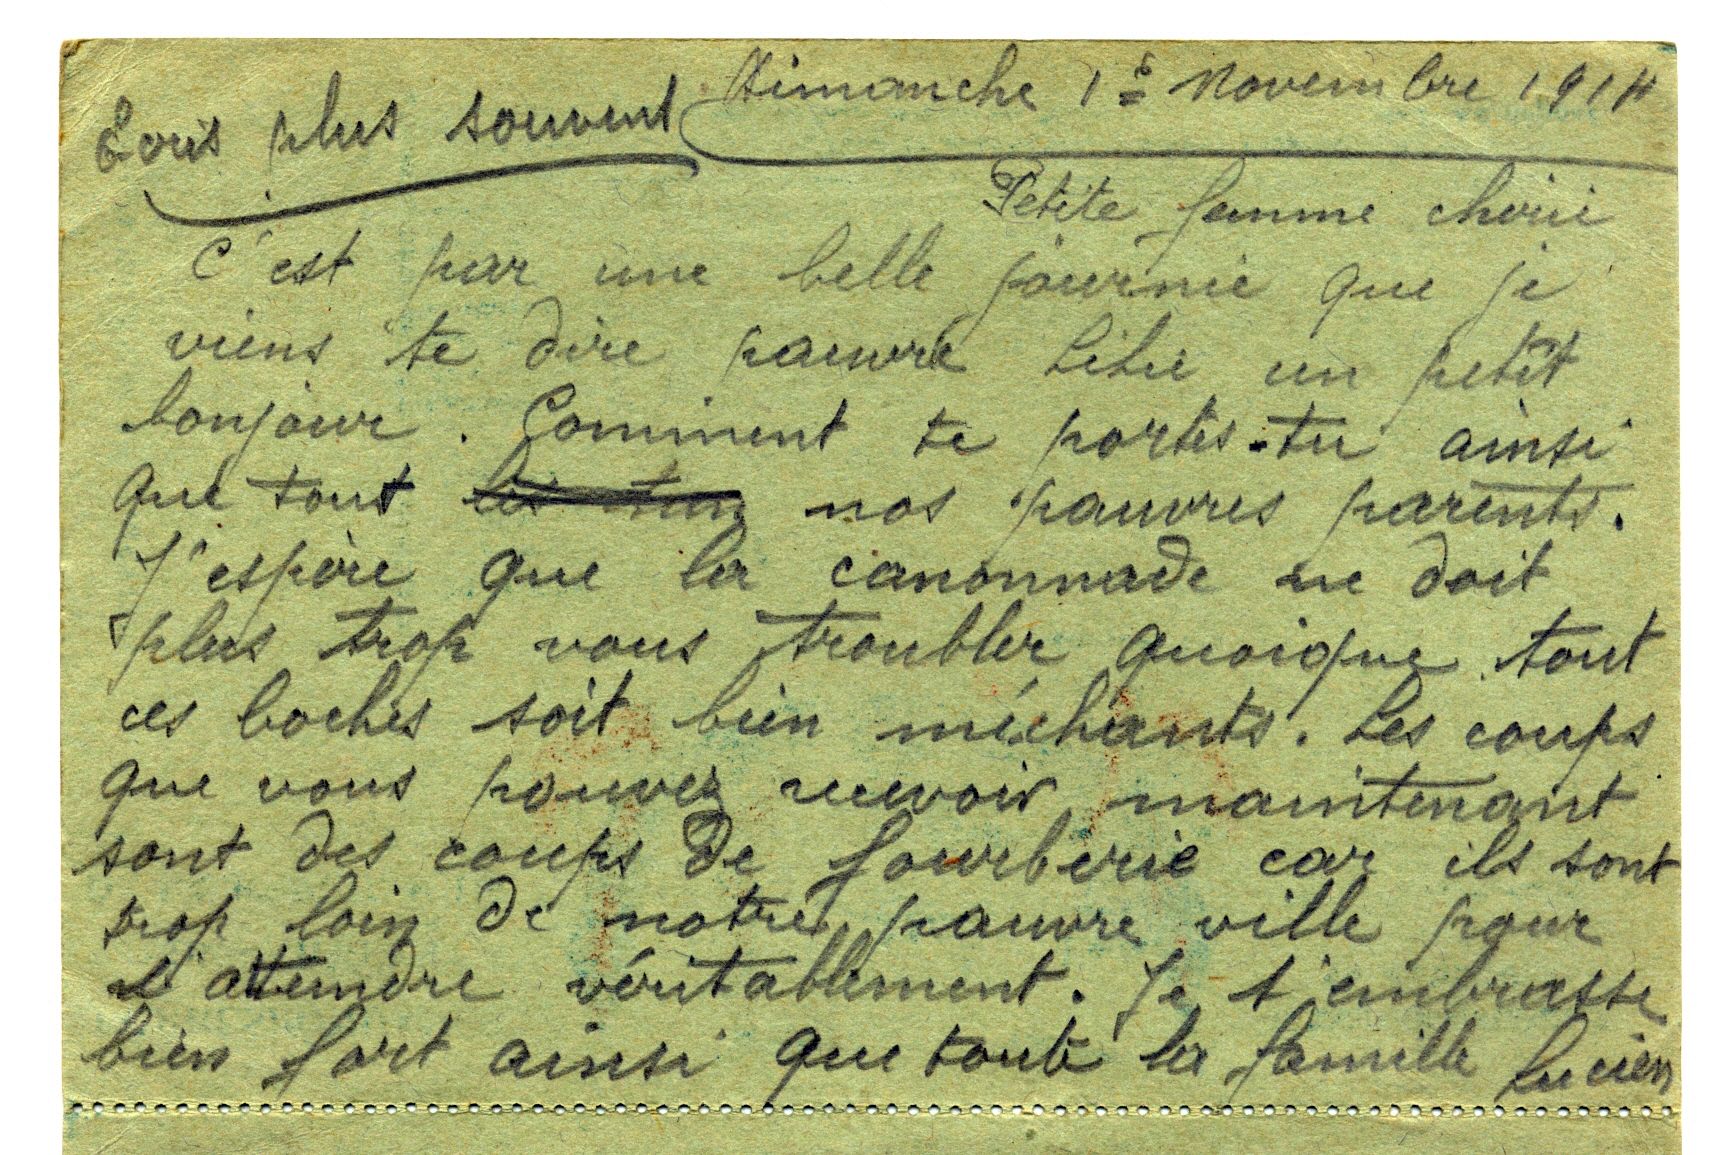 Dimanche 1e Novembre 1914
Ecris plus souvent
Petite femme chérie
C'est par une belle journée que je
viens te dire pauvre Lilie un petit
bonjour. Comment te portes-tu ainsi
que tout nos pauvres parents.
J'espère que la canonnade ne doit
plus trop vous troubler quoique tout
ces boches soit bien méchants. Les coups
que vous pouvez recevoir maintenant
sont des coups de fourberie car ils sont
trop loin de notre pauvre ville pour
l'atteindre véritablement. Je t'embrasse
bien fort ainsi que toute la famille Lucien